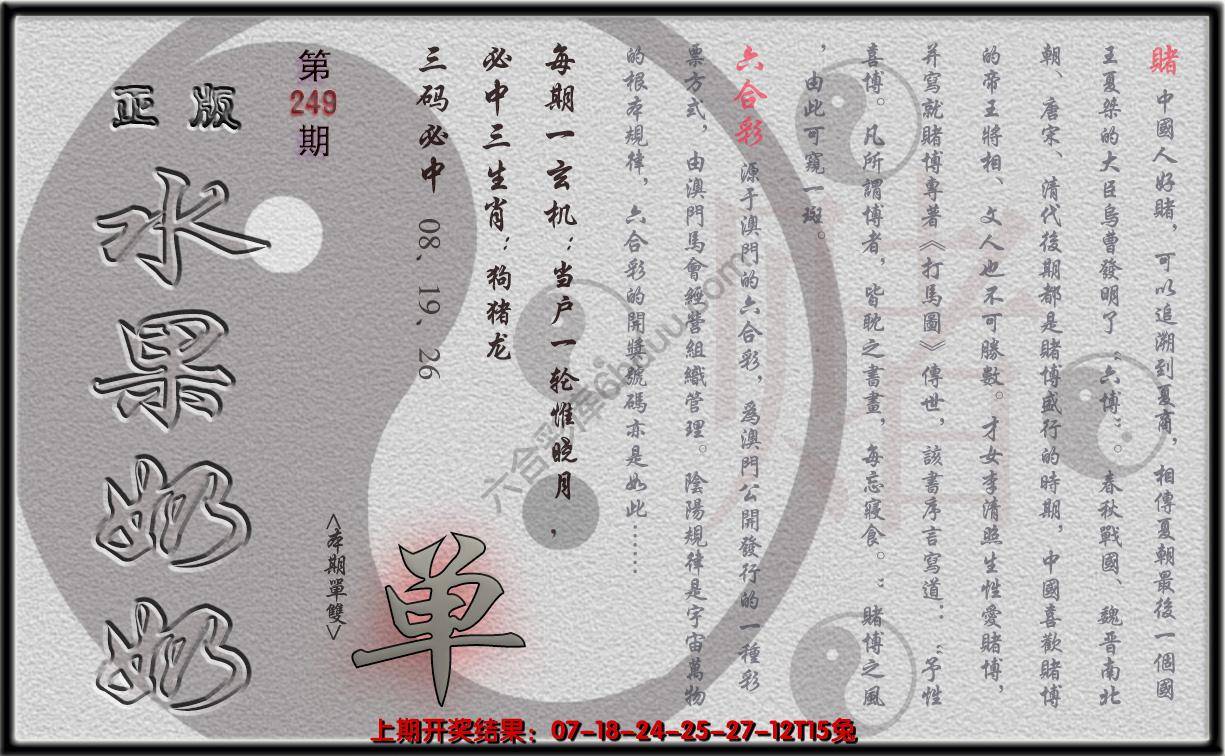 賭 中國人好賭，可以追溯到夏商，相傳夏朝最後一個國
王夏桀的大臣烏曹發明了“六博”。春秋戰國、魏晋南北
朝、唐宋、清代後期都是賭博盛行的時期，中國喜歡賭博
的帝王將相、文人也不可勝數。才女李清照生性愛賭博，
并寫就賭博專著《打馬圖》傳世，該書序言寫道：“予性
喜博。凡所謂博者，皆耽之書畫，每忘寢食。”賭博之風
，由此可窺一斑。
六合彩 源于澳門的六合彩，爲澳門公開發行的一種彩
票方式，由澳門馬會經營組織管理。陰陽規律是宇宙萬物
的根本規律，六合彩的開獎號碼亦是如此……
每期一玄机：当户一轮惟晓月，
必中三生肖：狗猪龙
三码必中 08、19、26
第
249
期
正版
水果奶奶
<本期單雙>
单
賭
六合彩库6huuu.com
上期开奖结果：07-18-24-25-27-12T15兔